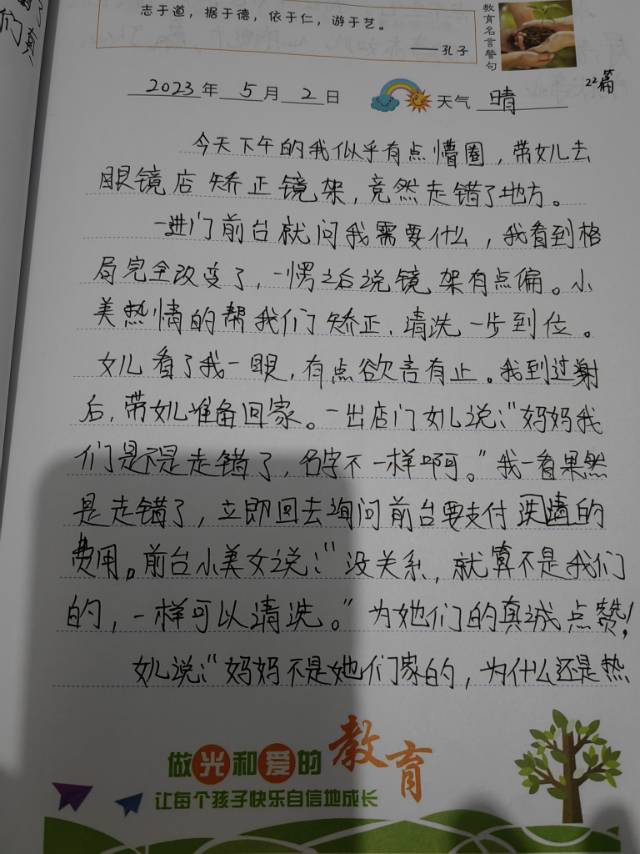 志于道，据于德，依于仁，游于艺。
——孔子
教育名言警句
2023年 5月 2日 天气 晴
22篇
今天下午的我似乎有点懵圈，带女儿去
眼镜店矫正镜架，竟然走错了地方。
一进门前台就问我需要什么，我看到格
局完全改变了，一愣之后说镜架有点偏。小
美热情的帮我们矫正，清洗一步到位。
女儿看了我一眼，有点欲言有止。我到过谢
后，带女儿准备回家。一出店门女儿说："妈妈我
们是不是走错了，名字不一样啊。"我一看果然
是走错了，立即回去询问前台要支付的
费用。前台小美女说："没关系，就算不是我们
的，一样可以清洗。"为她们的真诚点赞！
女儿说："妈妈不是她们家的，为什么还是热
做光和爱的教育
让每个孩子快乐自信地成长
们